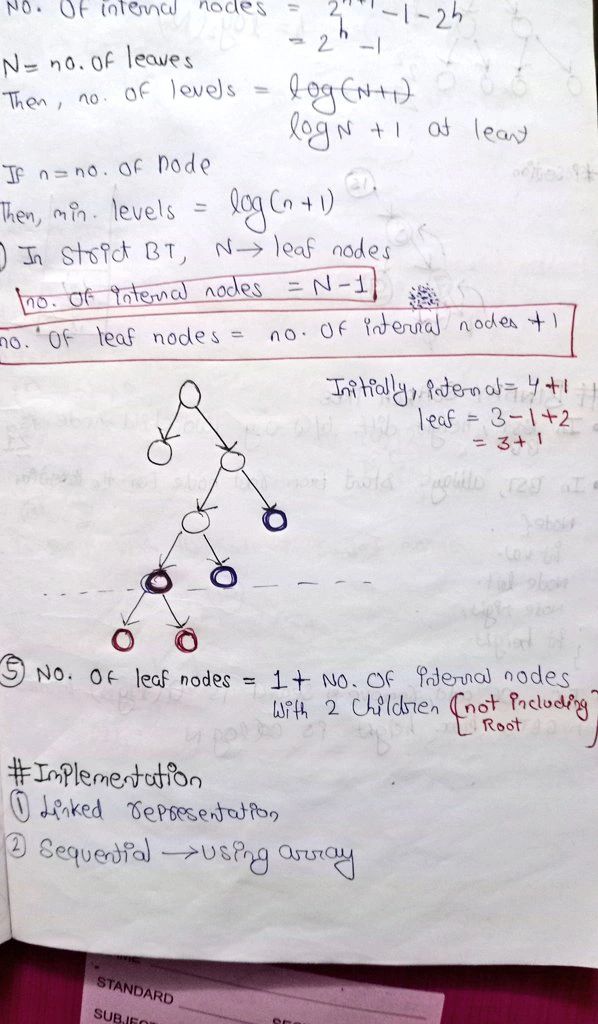 No. Of internal nodes = 2^{h+1} - 1 - 2^h
= 2^h - 1
N = no. of leaves
Then, no. of levels = log(N+1)
log N + 1 at least
If n = no. of node
Then, min. levels = log(n+1)
) In Strict BT, N → leaf nodes
no. of internal nodes = N-1
no. of leaf nodes = no. of internal nodes + 1
Initially, internal = 4 + 1
leaf = 3 - 1 + 2
= 3 + 1
⑤ No. Of leaf nodes = 1 + No. Of internal nodes
with 2 children [not including
Root]
# Implementation
① Linked representation
② Sequential → using array
STANDARD